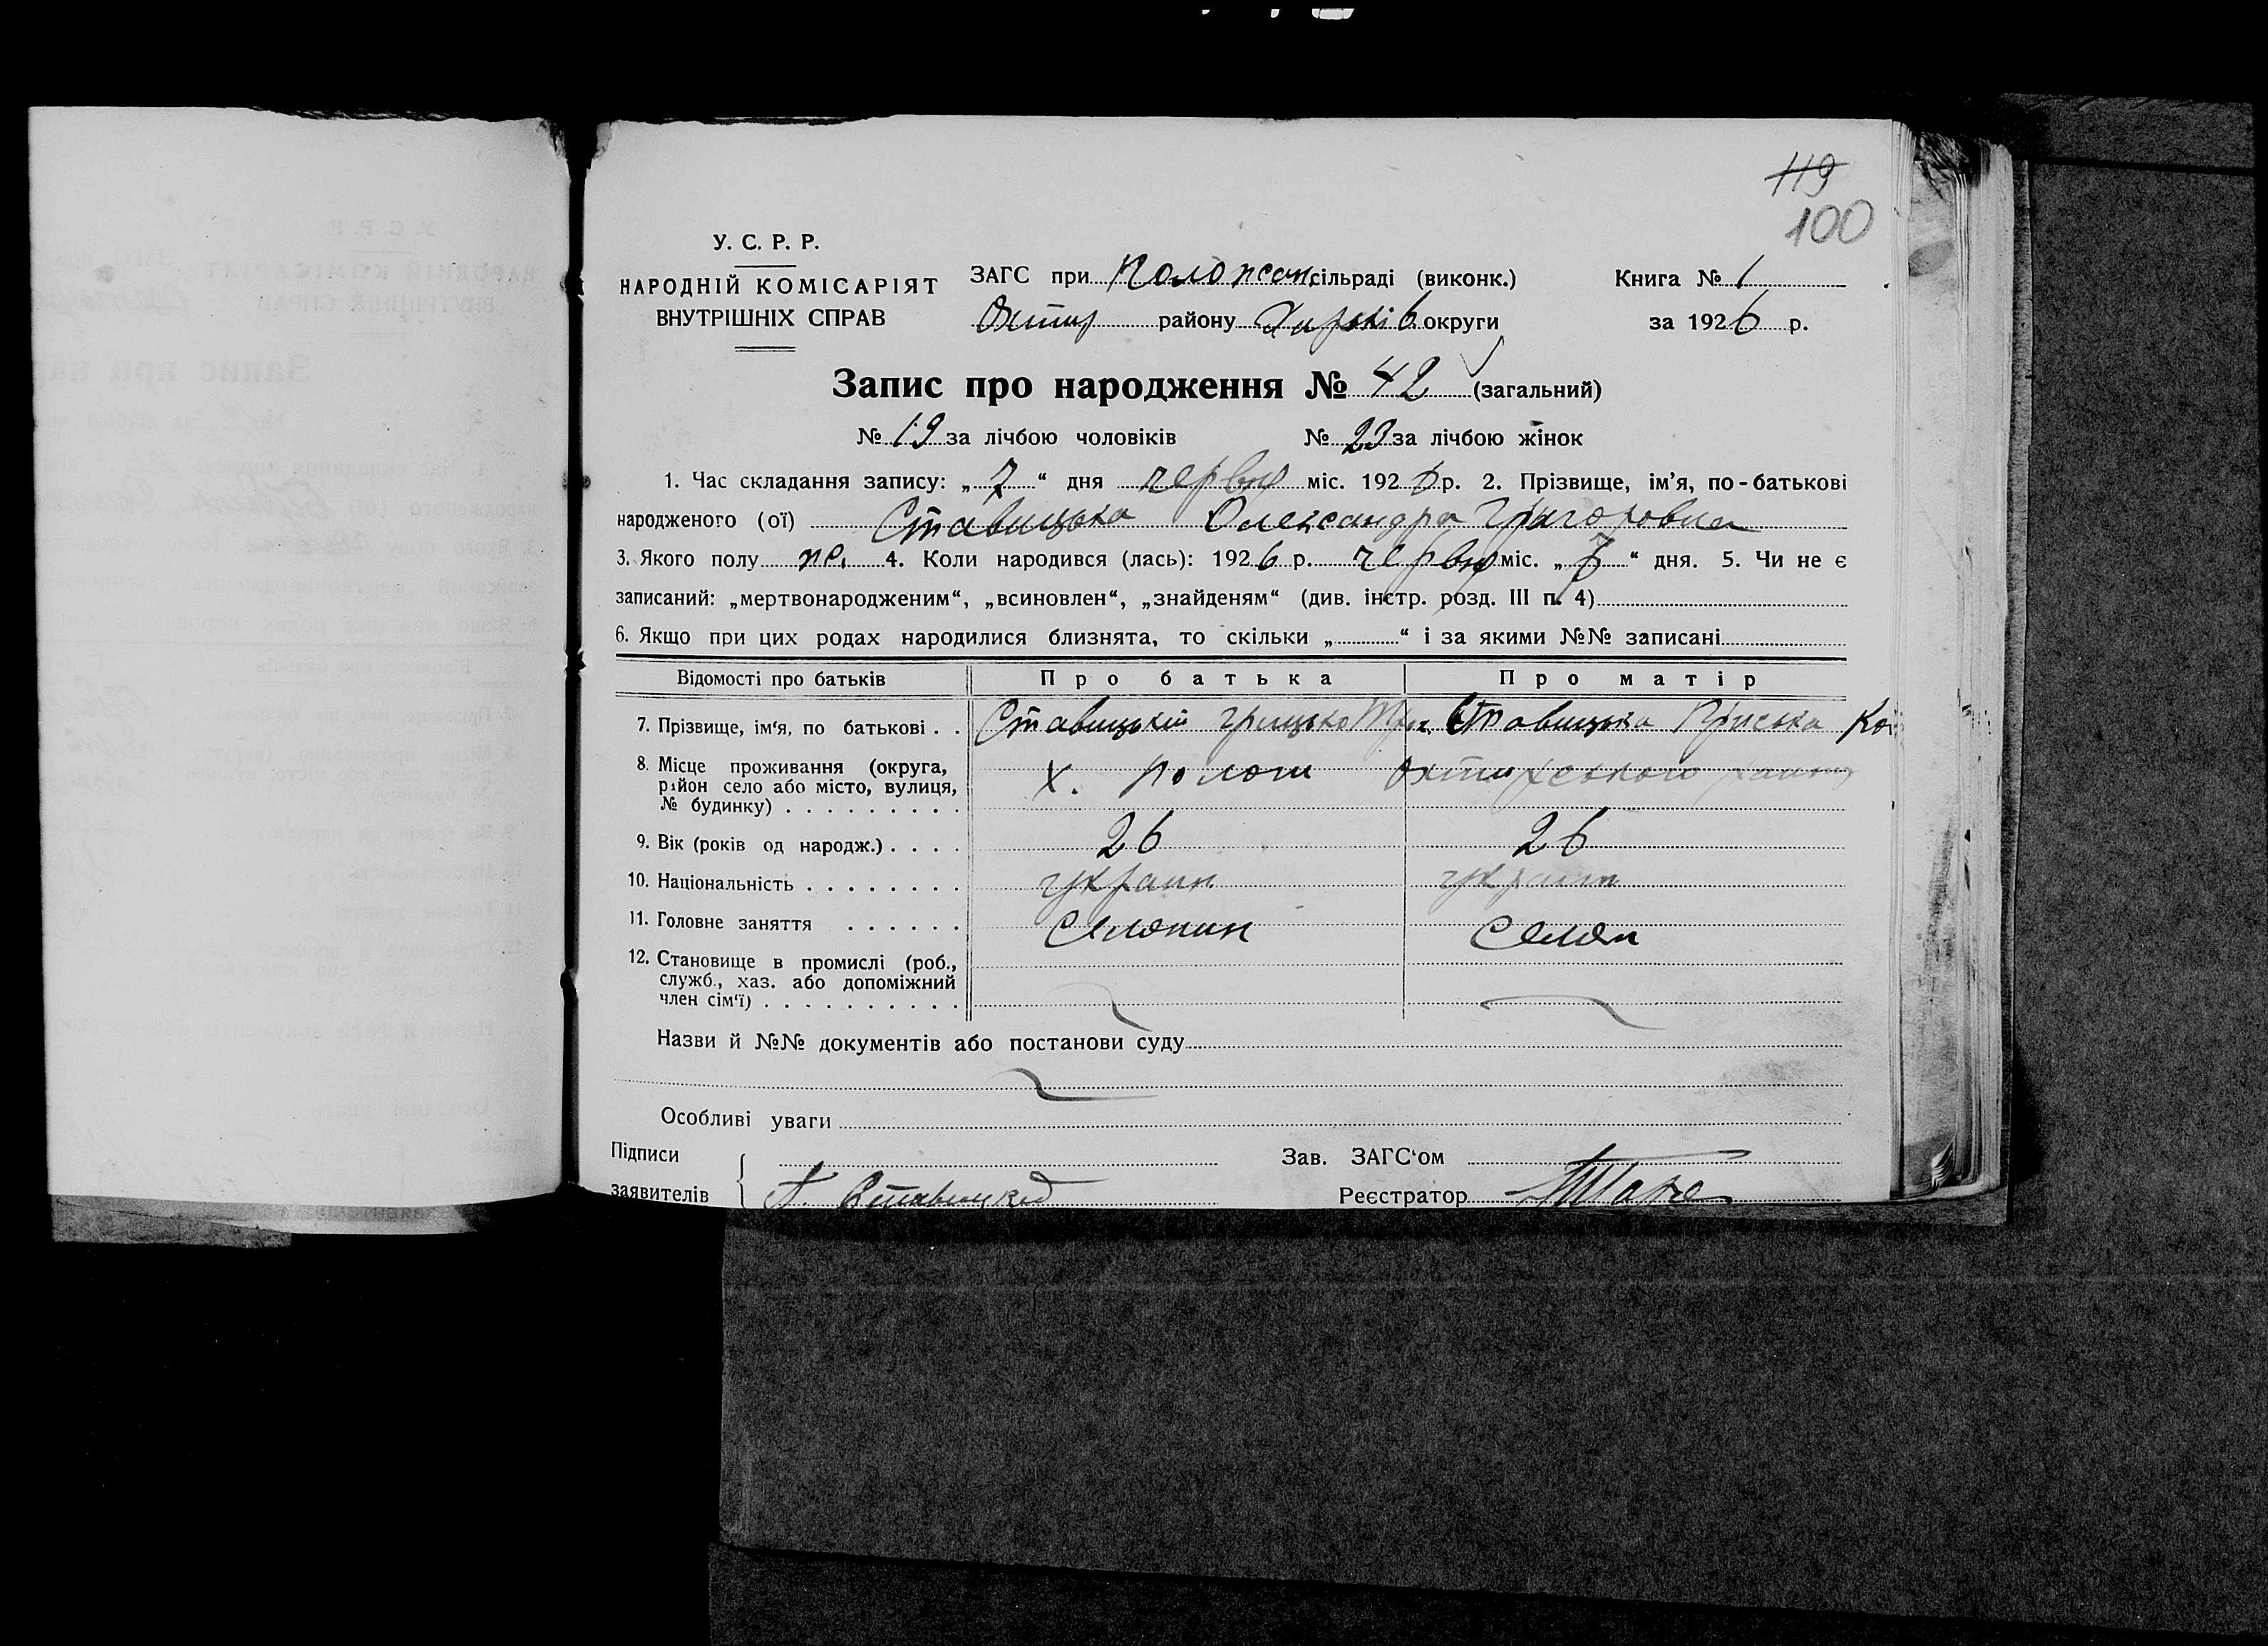 119
100
У. С. Р. Р.
НАРОДНІЙ КОМІСАРІЯТ
ВНУТРІШНІХ СПРАВ
ЗАГС при сільраді (виконк.)
Охтир району Харків округи
Книга № 1
за 1926 р.
Запис про народження № 42 (загальний)
№ 19 за лічбою чоловіків № 23 за лічбою жінок
1. Час складання запису: „ 7 “ дня червня міс. 1926 р. 2. Прізвище, ім’я, по-батькові
народженого (ої) Ставицька Олександра Григоровна
3. Якого полу 4. Коли народився (лась): 1926 р. червня міс. „ 7 “ дня. 5. Чи не є
записаний: „мертвонародженим“, „всиновлен“, „знайденям“ (див. інстр. розд. III п. 4)
6. Якщо при цих родах народилися близнята, то скільки „ “ і за якими №№ записані
Відомості про батьків Про батька Про матір
7. Прізвище, ім‘я, по батькові . . Ставицький Грицько Ставицька Пріська
8. Місце проживання (округа, х.
район село або місто, вулиця,
№ будинку) . . . . . . . . .
9. Вік (років од народж.) . . . . 26 26
10. Національність . . . . . . . . україн україн
11. Головне заняття . . . . . . Селянин Селян
12. Становище в промислі (роб.,
служб., хаз. або допоміжний
член сім‘ї) . . . . . . . . . .
Назви й №№ документів або постанови суду
Особливі уваги
Підписи Зав. ЗАГС‘ом
заявителів Реєстратор